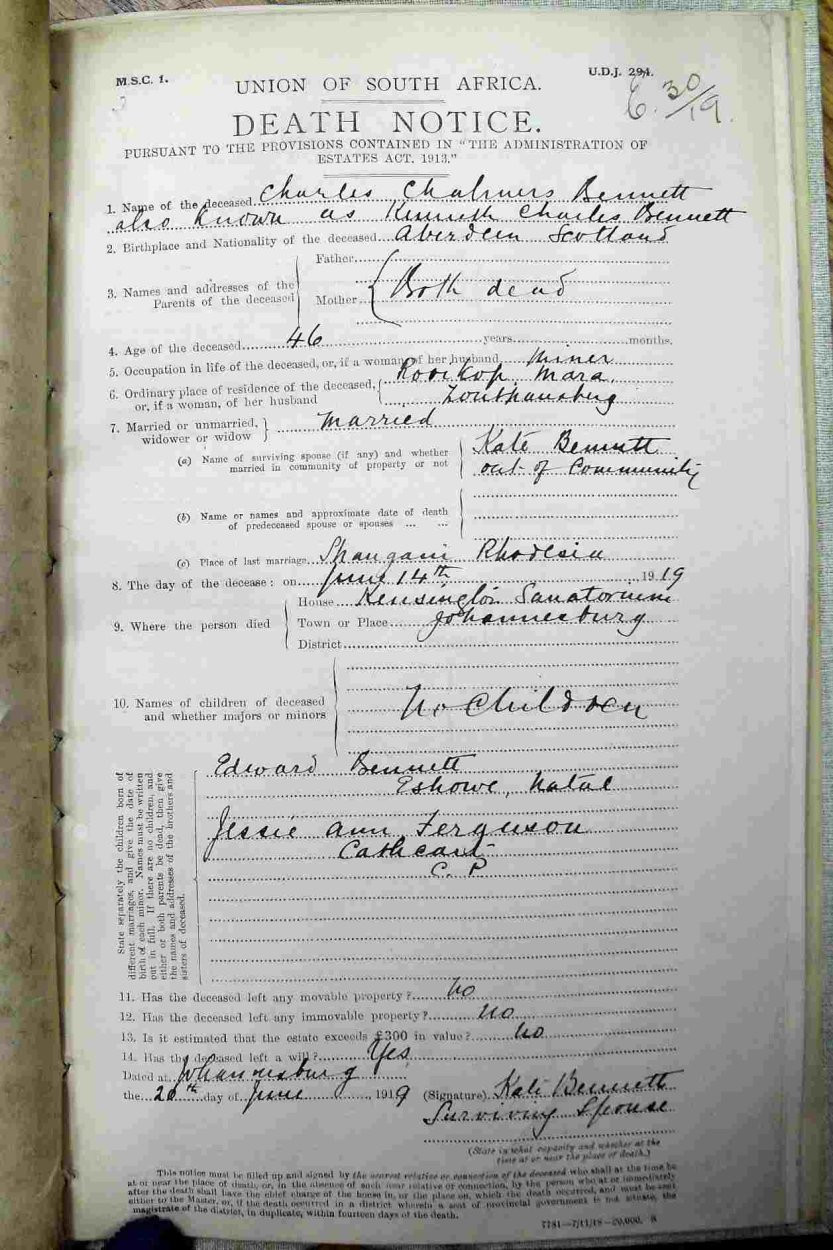 M.S.C. 1.
U.D.J. 294.
6. 30/19.
UNION OF SOUTH AFRICA.
DEATH NOTICE.
PURSUANT TO THE PROVISIONS CONTAINED IN "THE ADMINISTRATION OF
ESTATES ACT, 1913."
1. Name of the deceased Charles Chalmers Bennett
also known as Kenneth Charles Bennett
2. Birthplace and Nationality of the deceased Aberdeen Scotland
3. Names and addresses of the Parents of the deceased
Father
Mother
Both dead
4. Age of the deceased 46 years months.
5. Occupation in life of the deceased, or, if a woman, of her husband Miner
6. Ordinary place of residence of the deceased, Rooikop Mara,
or, if a woman, of her husband Zoutpansberg
7. Married or unmarried, widower or widow Married
(a) Name of surviving spouse (if any) and whether Kate Bennett
married in community of property or not out of Community
(b) Name or names and approximate date of death
of predeceased spouse or spouses ... ...
(c) Place of last marriage Shangani Rhodesia
8. The day of the decease: on June 14th 1919
9. Where the person died
House Kensington Sanatorium
Town or Place Johannesburg
District
10. Names of children of deceased
and whether majors or minors
No Children
State separately the children born of
different marriages, and give the date of
birth of each minor. Names must be written
out in full. If there are no children, and
either or both parents be dead, then give
the names and addresses of the brothers and
sisters of deceased.
Edward Bennett
Eshowe, Natal
Jessie Ann Ferguson
Cathcart
C. P
11. Has the deceased left any movable property? No
12. Has the deceased left any immovable property? No
13. Is it estimated that the estate exceeds £300 in value? No
14. Has the deceased left a will? Yes
Dated at Johannesburg
the 26th day of June, 1919
(Signature) Kate Bennett
Surviving Spouse
(State in what capacity and whether at the
time at or near the place of death.)
This notice must be filled up and signed by the nearest relative or connection of the deceased who shall at the time be
at or near the place of death, or, in the absence of such near relative or connection, by the person who at or immediately
after the death shall have the chief charge of the house in, or the place on, which the death occurred, and must be sent
either to the Master, or, if the death occurred in a district wherein a seat of provincial government is not situate, the
magistrate of the district, in duplicate, within fourteen days of the death.
7181—7/11/18—20,000.